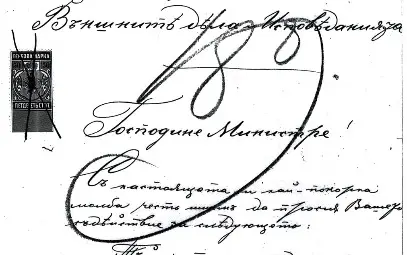 Външнитѣ дѣла и Исповѣданията
Господине Министре!
Съ настоящата си най-покорна
молба честь имамъ да прося Вашето
съдѣйствие за слѣдующето: